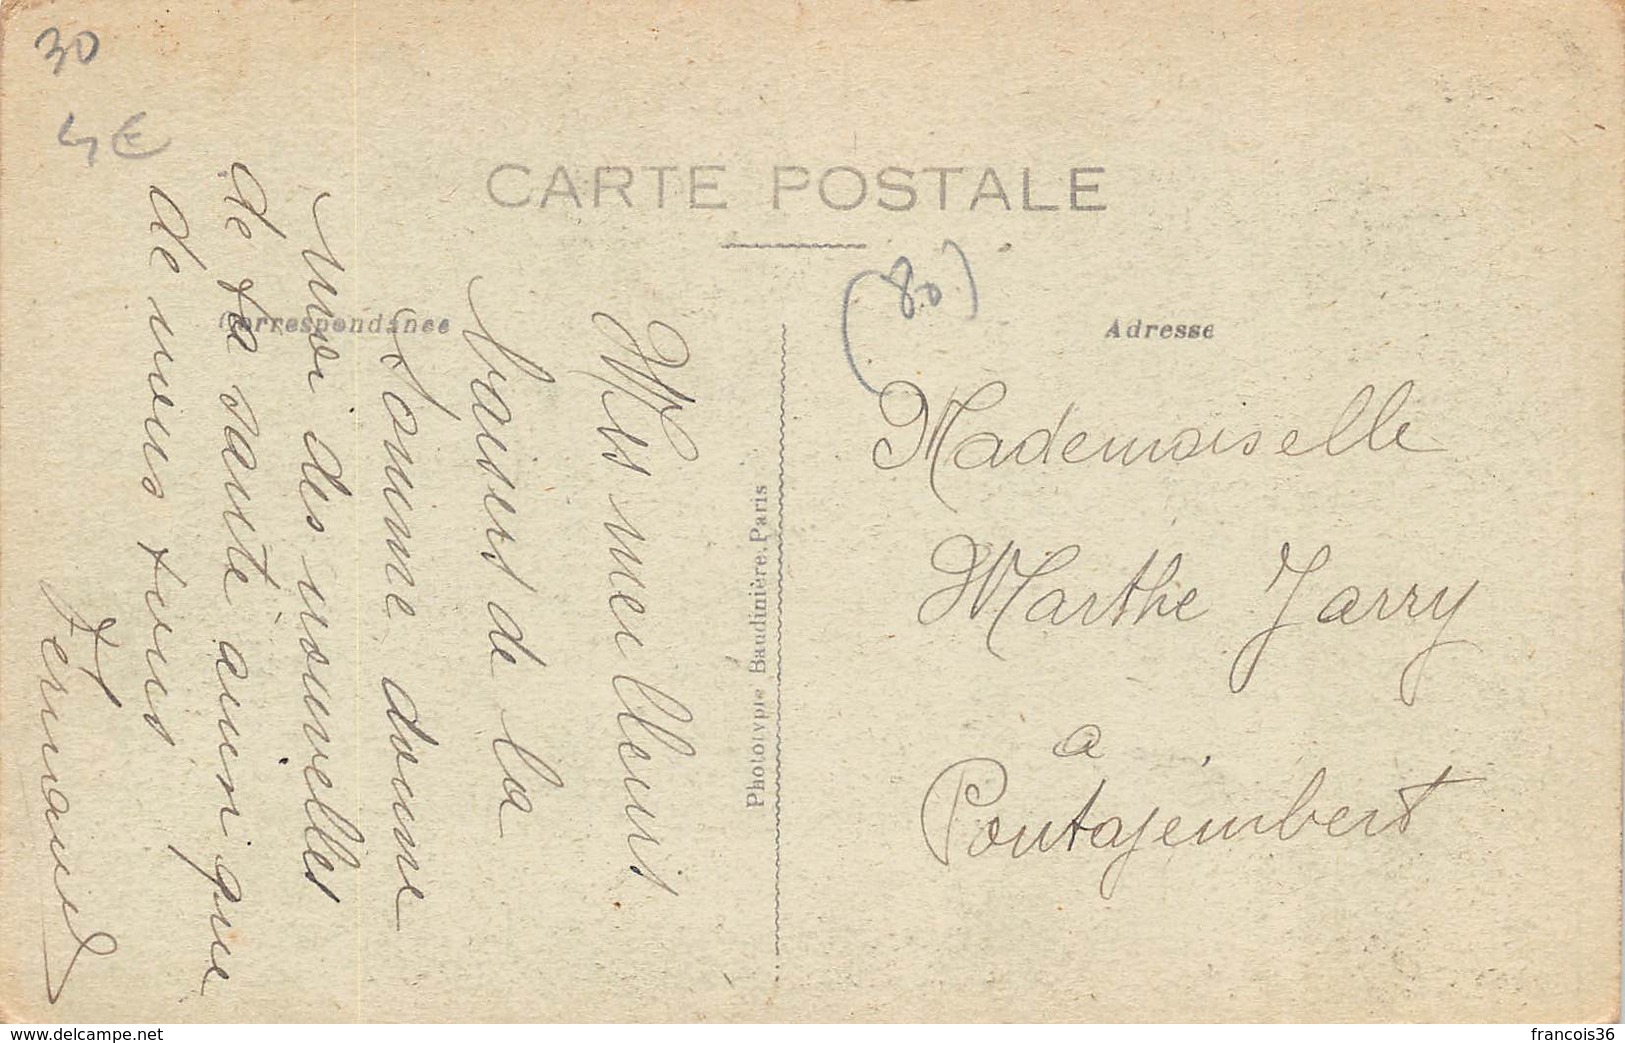 30
4€
CARTE POSTALE
(80)
Correspondance
Adresse
Mes meilleurs
baisers de la
Somme donne
moi des nouvelles
de ta santé ainsi que
de nous tous
Fernand
Phototypie Baudinière. Paris
Mademoiselle
Marthe Jarry
a
Pontajembert
www.delcampe.net
francois36